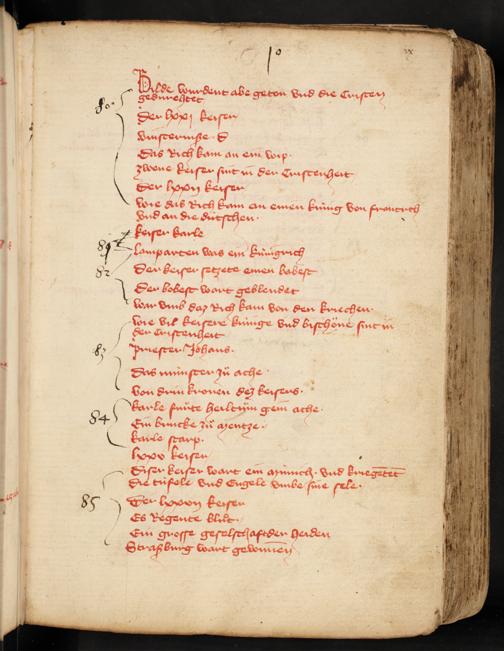 10
Bilde wurdent abe geton vnd die Cristen
gedurchtet
80
Der lxxj keiser
vinsternisse
Das Rich kam an ein wip.
zwene keiser sint in der Cristenheit
Der lxxij keiser
wie das Rich kam an einen kunig von franckrich
vnd an die dutschen.
keiser karle
81
lamparten was ein kunigrich
82
Der keiser setzete einen bobest
Der bobest wart geblendet
war vmb daz Rich kam von den kriechen.
wie vil keisere kunige vnd bischöue sint in
der Cristenheit
83
priester Johans.
Das munster zü ache.
Von drin kronen dez keisers.
84
karle furte heiltům gein ache.
Ein brucke zů mentze.
karle starp.
lxxv keiser
Diser keiser wart ein münich. vnd kriegetent
die tüfele vnd Engele vmbe sine sele.
85
Der lxxvij keiser
Es Regente blut.
Ein grosse geselschaft der heiden
Straßburg wart gewonnen